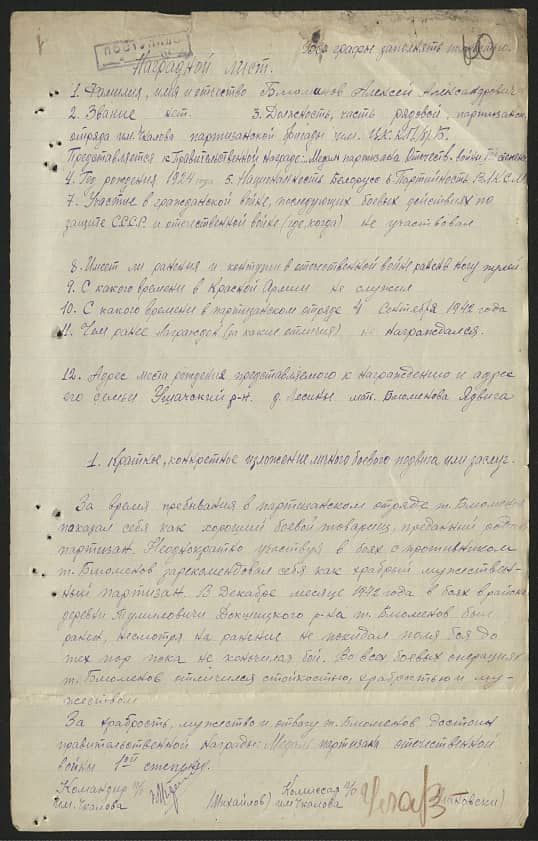 ПОСТУПИЛО
60
Все графы заполнять полностью.
Наградной лист.
1. Фамилия, имя и отчество Блюменов Алексей Александрович
2. Звание нет. 3. Должность, часть рядовой, партизан
отряда им. Чкалова партизанской бригады им. ЦК КП/б/Б.
Представляется к Правительственной награде: Медали партизана Отечеств. войны 1ой степени
4. Год рождения 1924 года 5. Национальность Белорусс 6. Партийность ВЛКСМ
7. Участие в гражданской войне, последующих боевых действиях по
защите СССР и отечественной войне (где, когда) не участвовал
8. Имеет ли ранения и контузии в отечественной войне ранен в ногу пулей
9. С какого времени в Красной Армии не служил
10. С какого времени в партизанском отряде 4 Сентября 1942 года
11. Чем ранее награжден (за какие отличия) не награждался.
12. Адрес места рождения представляемого к награждению и адрес
его семьи Ушачский р-н. д. Лесины мать Блюменова Ядвига
1. Краткое, конкретное изложение личного боевого подвига или заслуг.
За время пребывания в партизанском отряде т. Блюменов
показал себя как хороший боевой товарищ, преданный
партизан. Неоднократно участвуя в боях с противником
т. Блюменов зарекомендовал себя как храбрый мужествен-
ный партизан. В Декабре месяце 1942 года в боях в районе
деревни Тумиловичи Докшицкого р-на т. Блюменов был
ранен, несмотря на ранение не покидал поля боя до
тех пор пока не кончился бой. Во всех боевых операциях
т. Блюменов отличился стойкостью, храбростью и му-
жеством
За храбрость, мужество и отвагу т. Блюменов достоин
правительственной награды: Медали партизана отечественной
войны 1ой степени.
Командир п/о Комиссар п/о
им. Чкалова (Михайлов) им. Чкалова